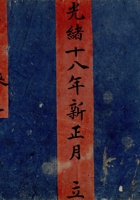 光緒十八年新正月 立